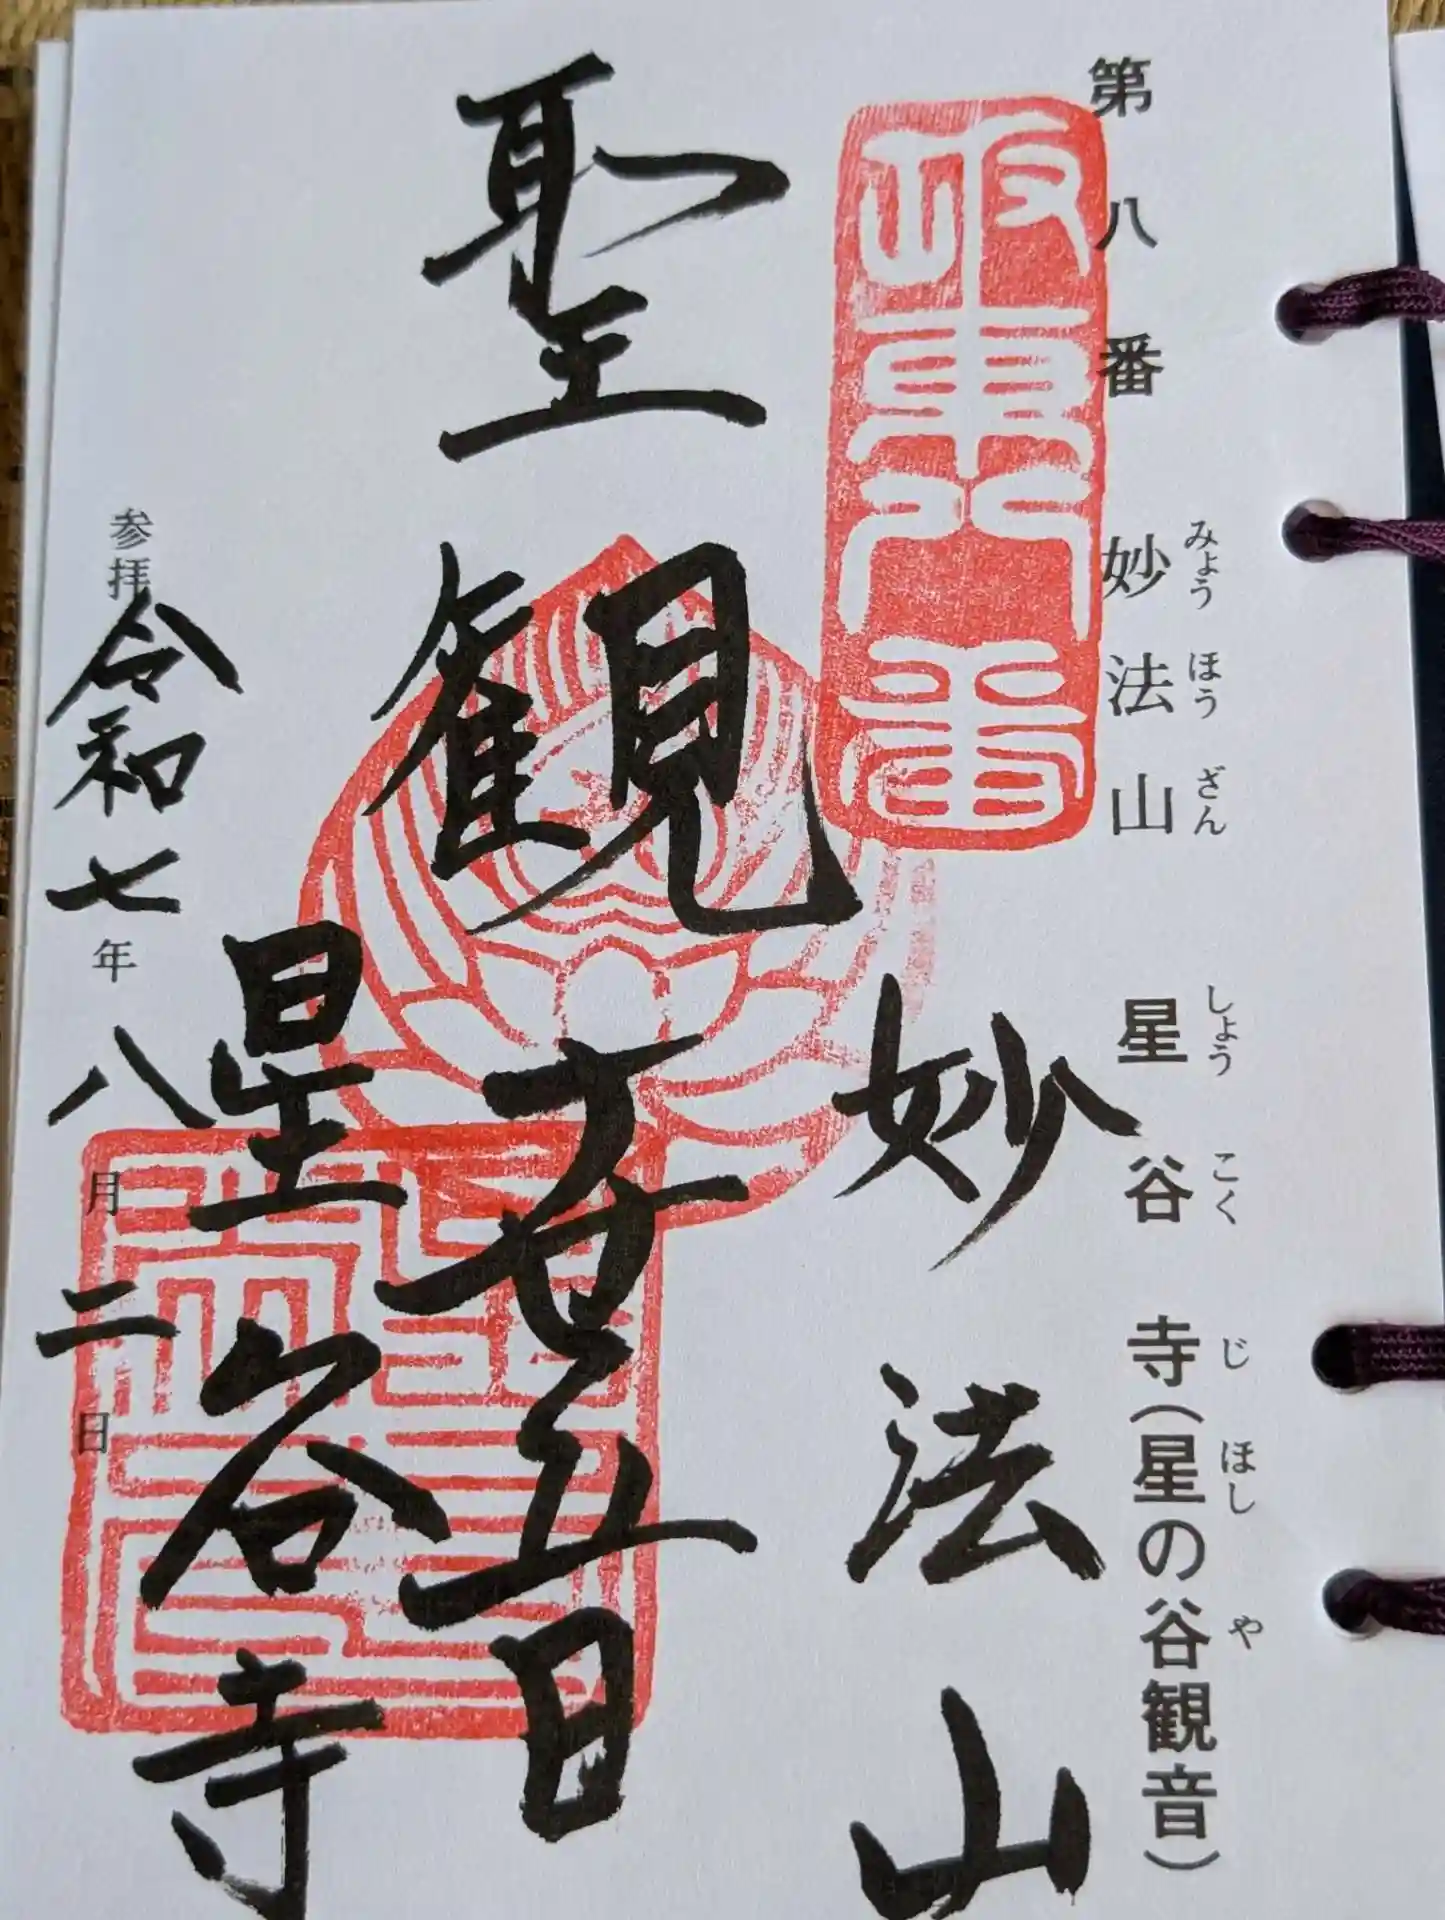 みょう ほう ざん しょう こく じ ほし や
第八番 妙法山 星谷寺(星の谷観音)
坂東八番
妙法山
聖観世音
星谷寺
参拝 令和七年八月二日